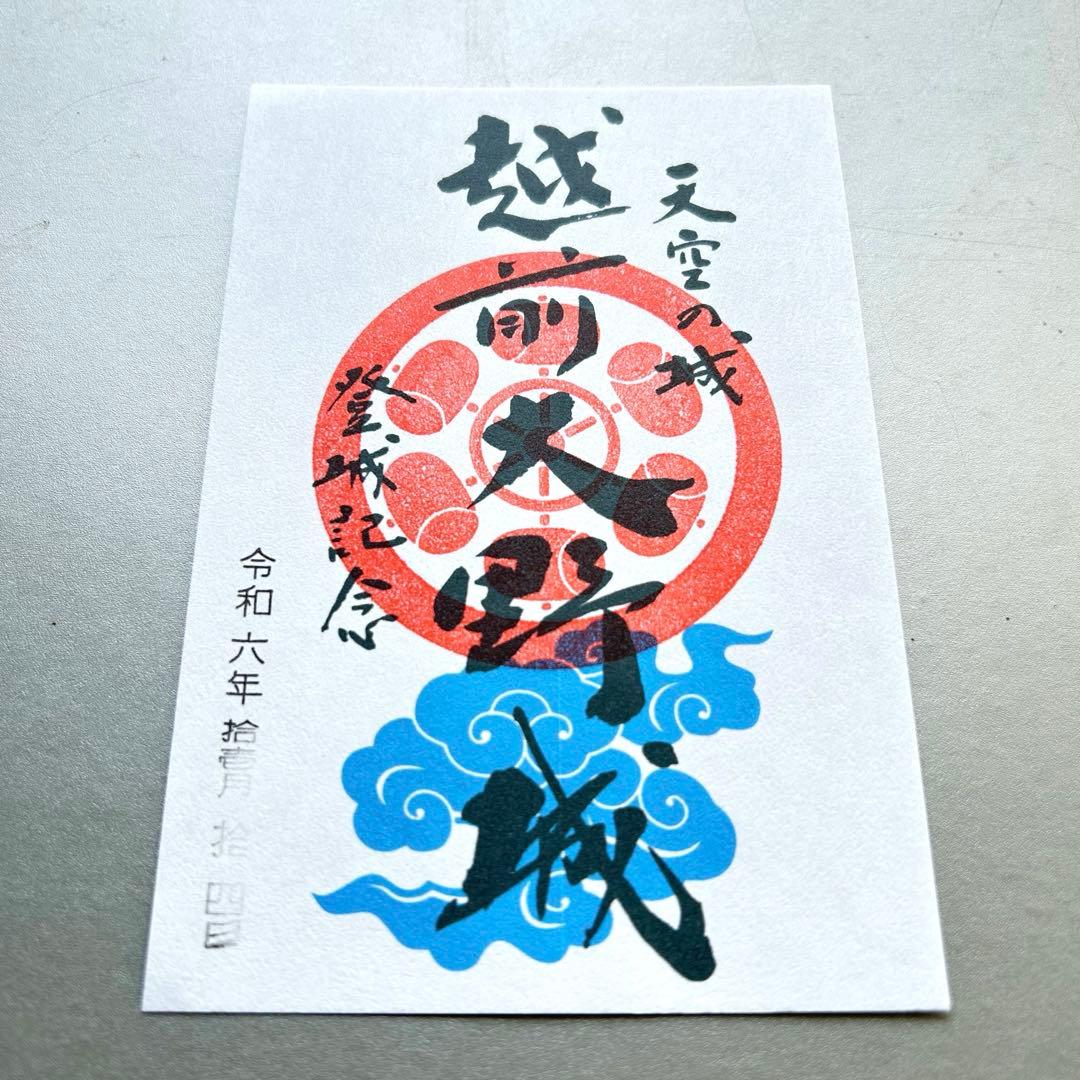 天空の城
越前大野城
登城記念
令和六年拾壱月拾四日